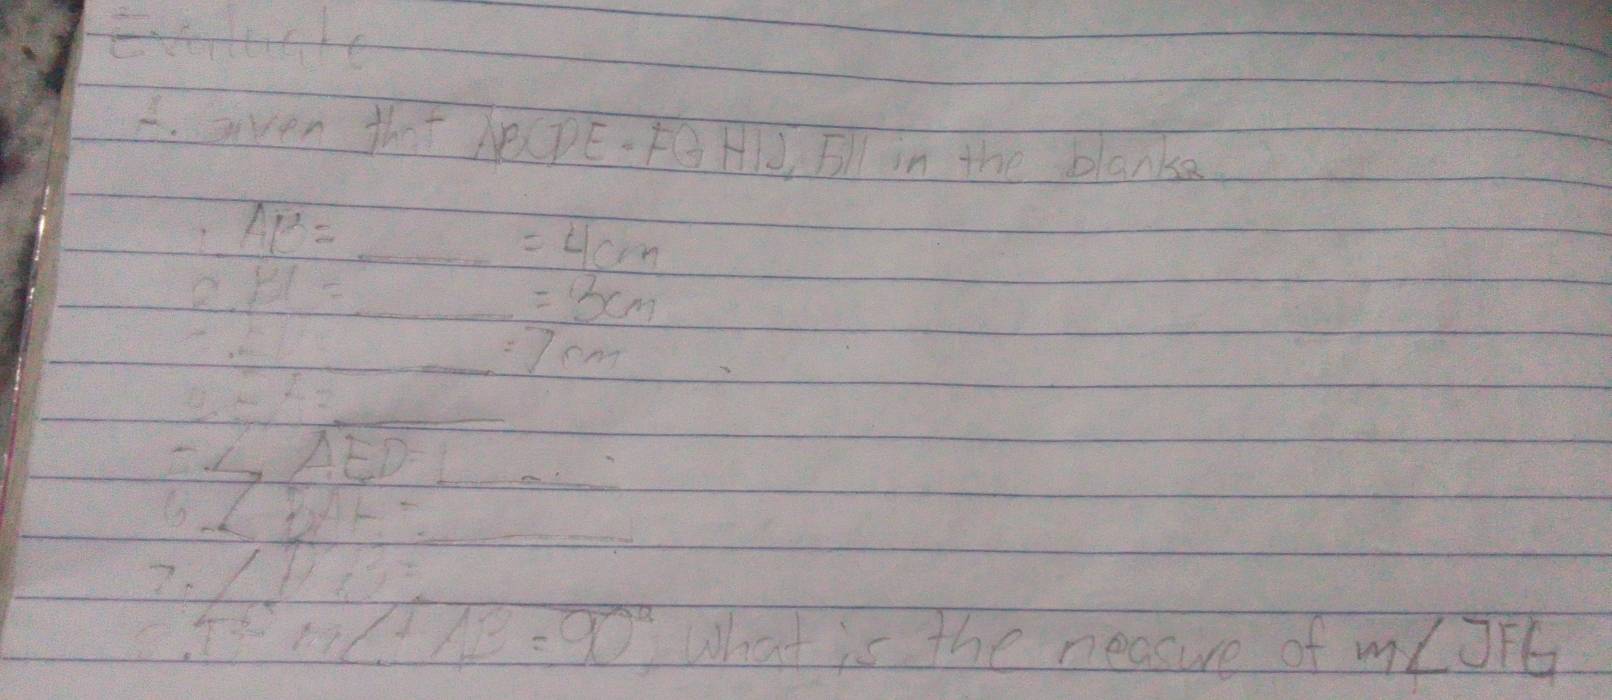 Evaluate
A. Given that ABCDE - FGHIJ, Fill in the blanks
1. AB = ______ = 4cm
= ______ = 3cm
______ = 7cm
EA = ______
∠ AED = ______
6. ∠ BAE = ______
7. ∠ ______
If m∠EAB = 90°, what is the measure of m∠JFG